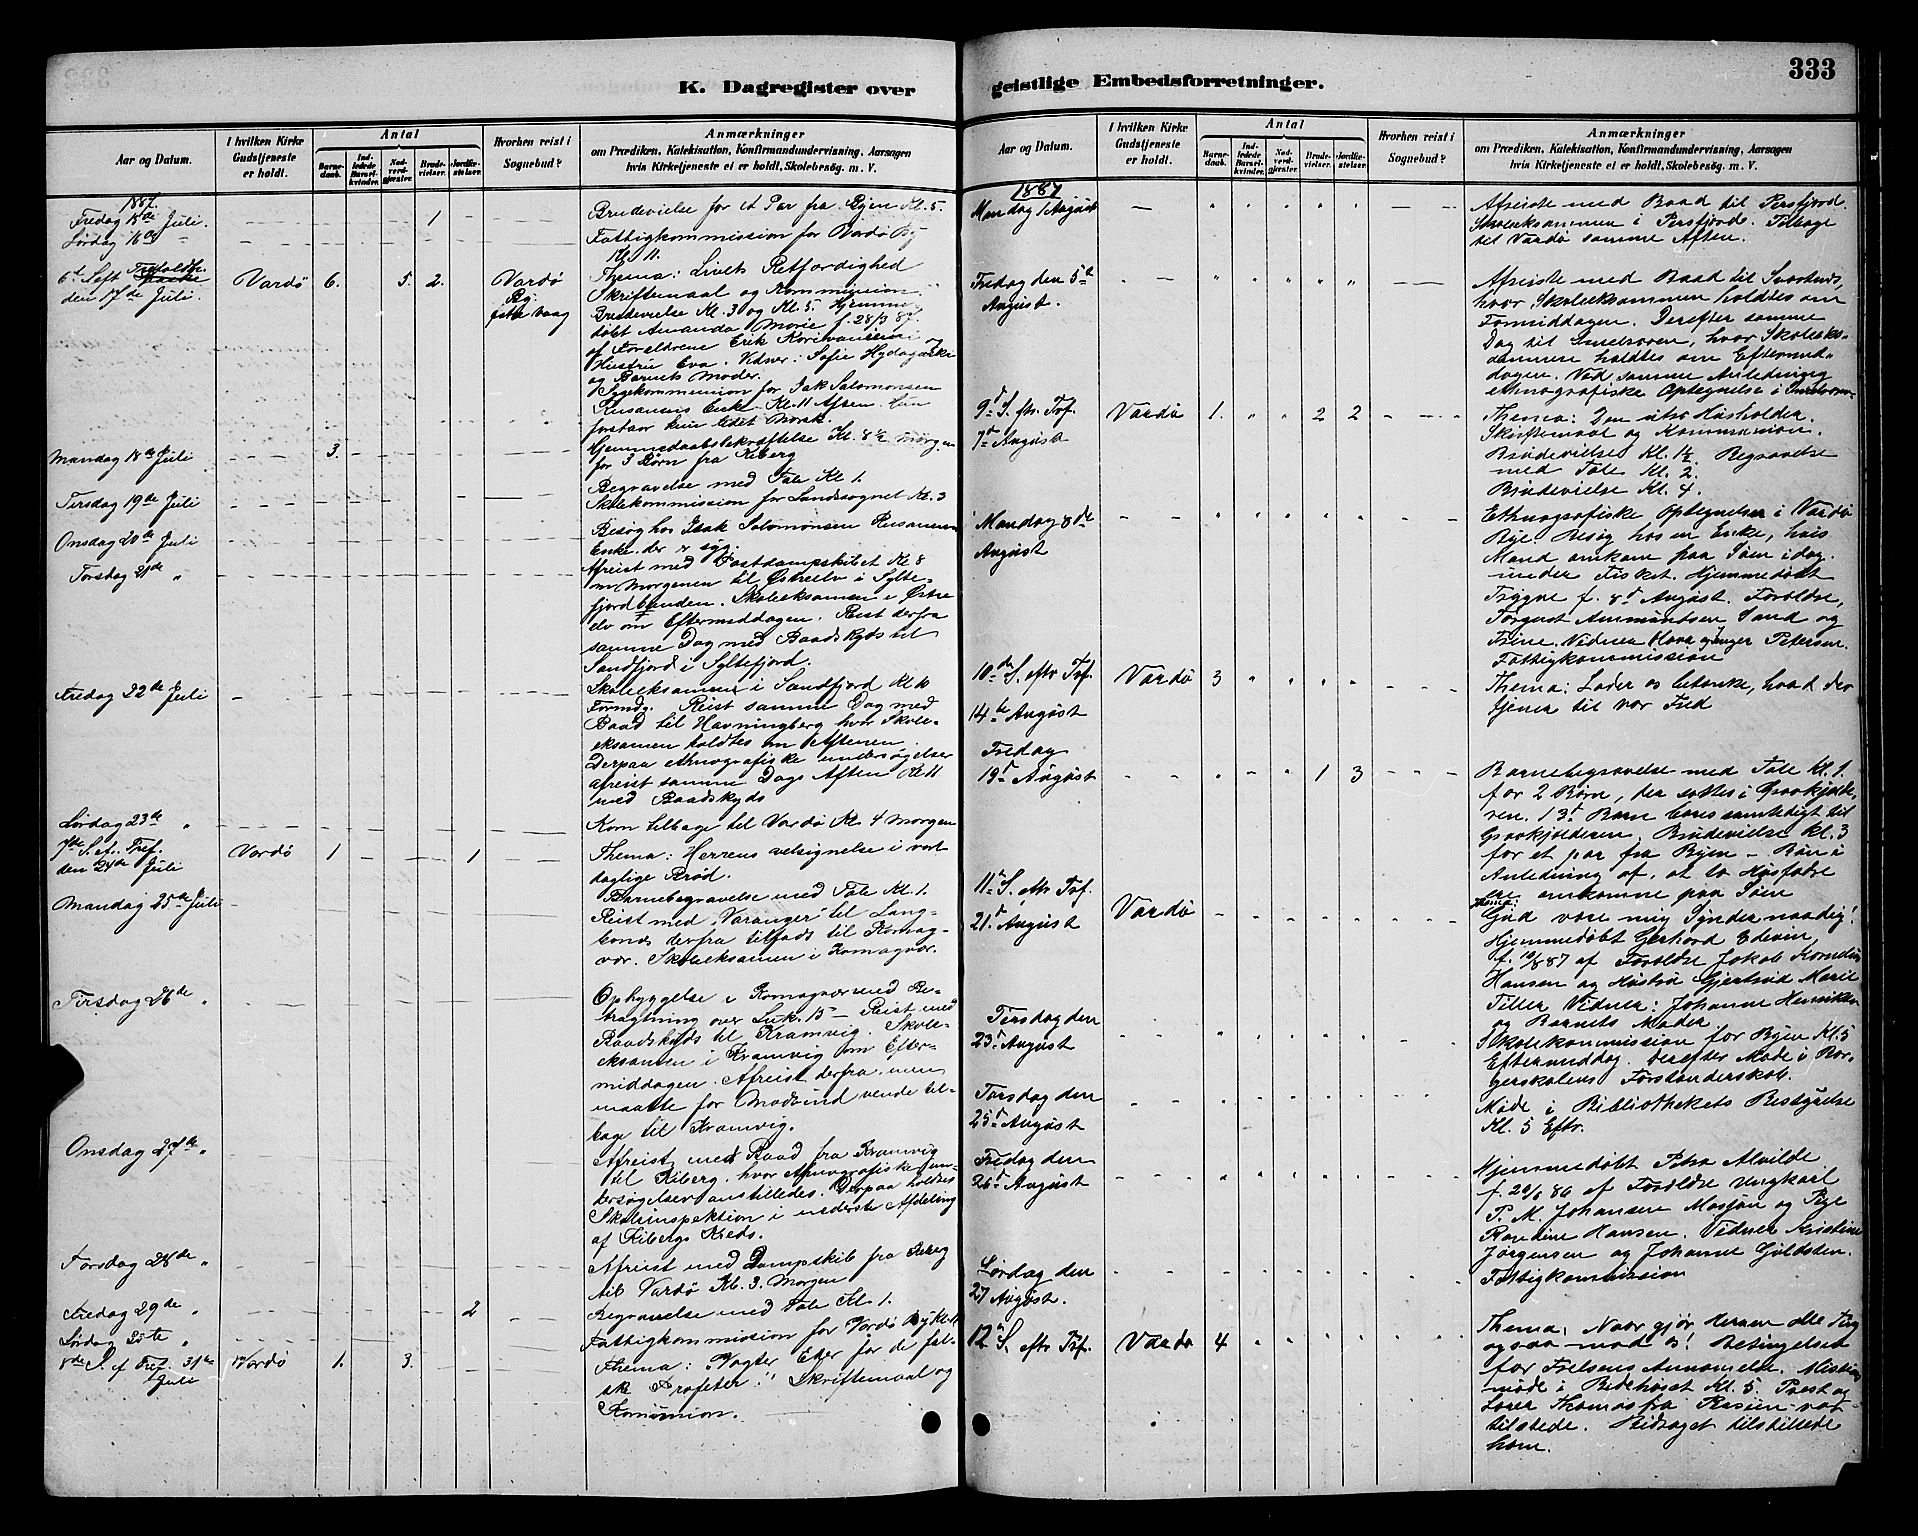 333
K. Dagregister over
geistlige Embedsforretninger.
Aar og Datum.
I hvilken Kirke Gudstjeneste er holdt.
Antal
Barnedaab.
Indledede Barselkvinder.
Nadverdgjæster.
Brudevielser.
Jordfæstelser.
Hvorhen reist i Sognebud?
Anmærkninger
om Prædiken, Katekisation, Konfirmandundervisning, Aarsagen
hvis Kirketjeneste ei er holdt, Skolebesøg. m. V.
1887.
Fredag 15de Juli. 1
Brudevielse for et Par fra Byen Kl. 5.
Lørdag 16de "
Fattigkommission for Vardø By
Kl. 11.
6te S. eft. Trefoldh.
den 17de Juli. Vardø 6. 5. 2. Vardø By
Thema: Livets Retfærdighed
Skriftemaal og Kommunion
Brudevielse Kl. 3 og Kl. 5. Hjemme-
døbt Amanda Marie f. 28/3 87.
af Forældrene Erik
Hustru Eva. Vidner: Sofie
og Barnets Moder.
Sygekommunion for Isak Salomonsen
Enke Kl. 11 Aften. Hun
forstaar kun lidet Norsk.
Mandag 18de Juli 3.
Hjemmedaabsbekræftelse Kl. 8 1/2 Morgen
for 3 Børn fra Kiberg
Tirsdag 19de Juli
Begravelse med Tale Kl. 1.
Skolekommission for Landsognet Kl. 3
Onsdag 20de Juli
Besøg hos Isak Salomonsen
Enke, der er syg.
Torsdag 21de "
Afreist med Postdampskibet Kl. 8
om Morgenen til Østreelv i Sylte-
fjordbunden. Skoleeksamen i Østre
elv om Eftermiddagen. Reist derfra
samme Dag med Baadskyds til
Sandfjord i Syltefjord.
Fredag 22de Juli
Skoleeksamen i Sandfjord Kl. 10
Formdg. Reist samme Dag med
Baad til Havningberg hvor Skole-
eksamen holdtes om Aftenen.
Derpaa ethnografiske undersøgelser
afreist samme Dags Aften Kl. 11
med Baadskyds
Lørdag 23de "
Kom tilbage til Vardø Kl. 4 Morgen
7de S. ef. Tref.
den 24de Juli Vardø 1 1
Thema: Herrens velsignelse i vort
daglige Brød.
Mandag 25de Juli
Barnebegravelse med Tale Kl. 1.
Reist med "Varanger" til Lang-
bunds derfra tilfods til Komag-
vær. Skoleeksamen i Komagvær.
Tirsdag 26de "
Opbyggelse i Komagvær med Be-
tragtning over Luk. 15 – Reist med
Baadskyds til Kramvig. Skole-
eksamen i Kramvig om Efter-
middagen. Afreist derfra, men
maatte for Modvind vende til-
bage til Kramvig.
Onsdag 27de "
Afreist med Baad fra Kramvig
til Kiberg, hvor ethnografiske un-
dersøgelser anstilledes. Derpaa holdtes
Skoleinspektion i nederste Afdeling
af Kibergs Kreds.
Torsdag 28de "
Afreist med Dampskib fra Kiberg
til Vardø Kl. 3. Morgen
Fredag 29de " 2
Begravelse med Tale Kl. 1.
Lørdag 30te "
Fattigkommission for Vardø By Kl. 11
8de S. ef Tref. 31te
Juli Vardø 1. 3.
Thema: Vogter Eder for de fal-
ske Profeter!" Skriftemaal og
Komunion.
Aar og Datum.
I hvilken Kirke Gudstjeneste er holdt.
Antal
Barnedaab.
Indledede Barselkvinder.
Nadverdgjæster.
Brudevielser.
Jordfæstelser.
Hvorhen reist i Sognebud?
Anmærkninger
om Prædiken, Katekisation, Konfirmandundervisning, Aarsagen
hvis Kirketjeneste ei er holdt, Skolebesøg. m. V.
1887
Mandag 1 August
Afreiste med Baad til Persfjord.
Skoleeksamen i Persfjord. Tilbage
til Vardø samme Aften.
Fredag den 5te
August.
Afreiste med Baad til Svartnæs,
hvor Skoleeksamen holdtes om
Formiddagen. Derefter samme
Dag til Smelroren, hvor Skoleek-
samen holdtes om Eftermid-
dagen. Ved samme Anledning
ethnografiske Optegnelse i Smelroren
9d S. eftr. Tref.
7d August Vardø 1. 2 2
Thema: Den utro Husholder.
Skriftemaal og Kommunion.
Brudevielse Kl. 1 1/2 Begravelse
med Tale Kl. 2.
Brudevielse Kl. 4.
Mandag 8de
August
Ethnografiske Optegnelser i Vardø
By. Besøg hos en Enke, hvis
Mand omkom paa Søen idag
under Fisket. Hjemmedøbt
Trygve f. 8d August. Forældre,
Torgust Ammundsen Sand og
Trine. Vidner Petersen.
Fattigkommission
10de S. eftr Tref.
14de August Vardø 3
Thema: Lader os betænke, hvad der
tjener til vor Fred
Fredag
19d August 1 3
Barnebegravelse med Tale Kl. 1.
for 2 Børn, der sattes i Gravkjælde-
ren. 1 3d Barn bares samtidigt til
Gravkjælderen. Brudevielse Kl. 3
for et par fra Byen – Bøn i
Anledning af, at to Husfædre
ere omkomne paa Søen
11te S. eftr Tref.
21d August Vardø
Thema:
Gud være mig Synder naadig!
Hjemmedøbt Gerhard Edevin,
f. 10/8 87 af Forældre Jakob Kornelius
Hansen og Hustru Gjertrud Marie
Tiller. Vidner: Johanne Henriksen
og Barnets Moder
Tirsdag den
23d August
Skolekommission for Byen Kl. 5
Eftermiddag. Derefter Møde i Bor-
gerskolens Forstanderskab.
Torsdag den
25d August
Møde i Bibliothekets Bestyrelse
Kl. 5 Eftr.
Fredag den
26d August
Hjemmedøbt Petra Alvilde
f. af Forældre Ungkarl
P. M. Johansen Mosjøn og Pige
Randine Hansen. Vidner Kristine
Jørgensen og Johanne Guldsten.
Lørdag den
27 August.
Fattigkommission
12te S. eftr Tref. Vardø 4
Thema: Naar gjør Herren alle Ting
ogsaa mod os! Betingelsen
for Frelsens Annamelse. Missions
møde i Bedehuset Kl. 5. Præst og
Lærer Thomas fra Persien var
tilstede. Bidraget tilstilledes
ham.